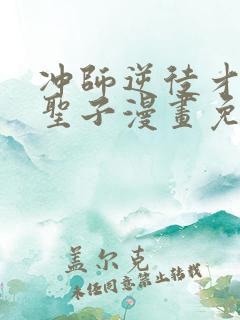 冲師逆徒才
聖子漫畫免
盖尔克
未经同意禁止转载